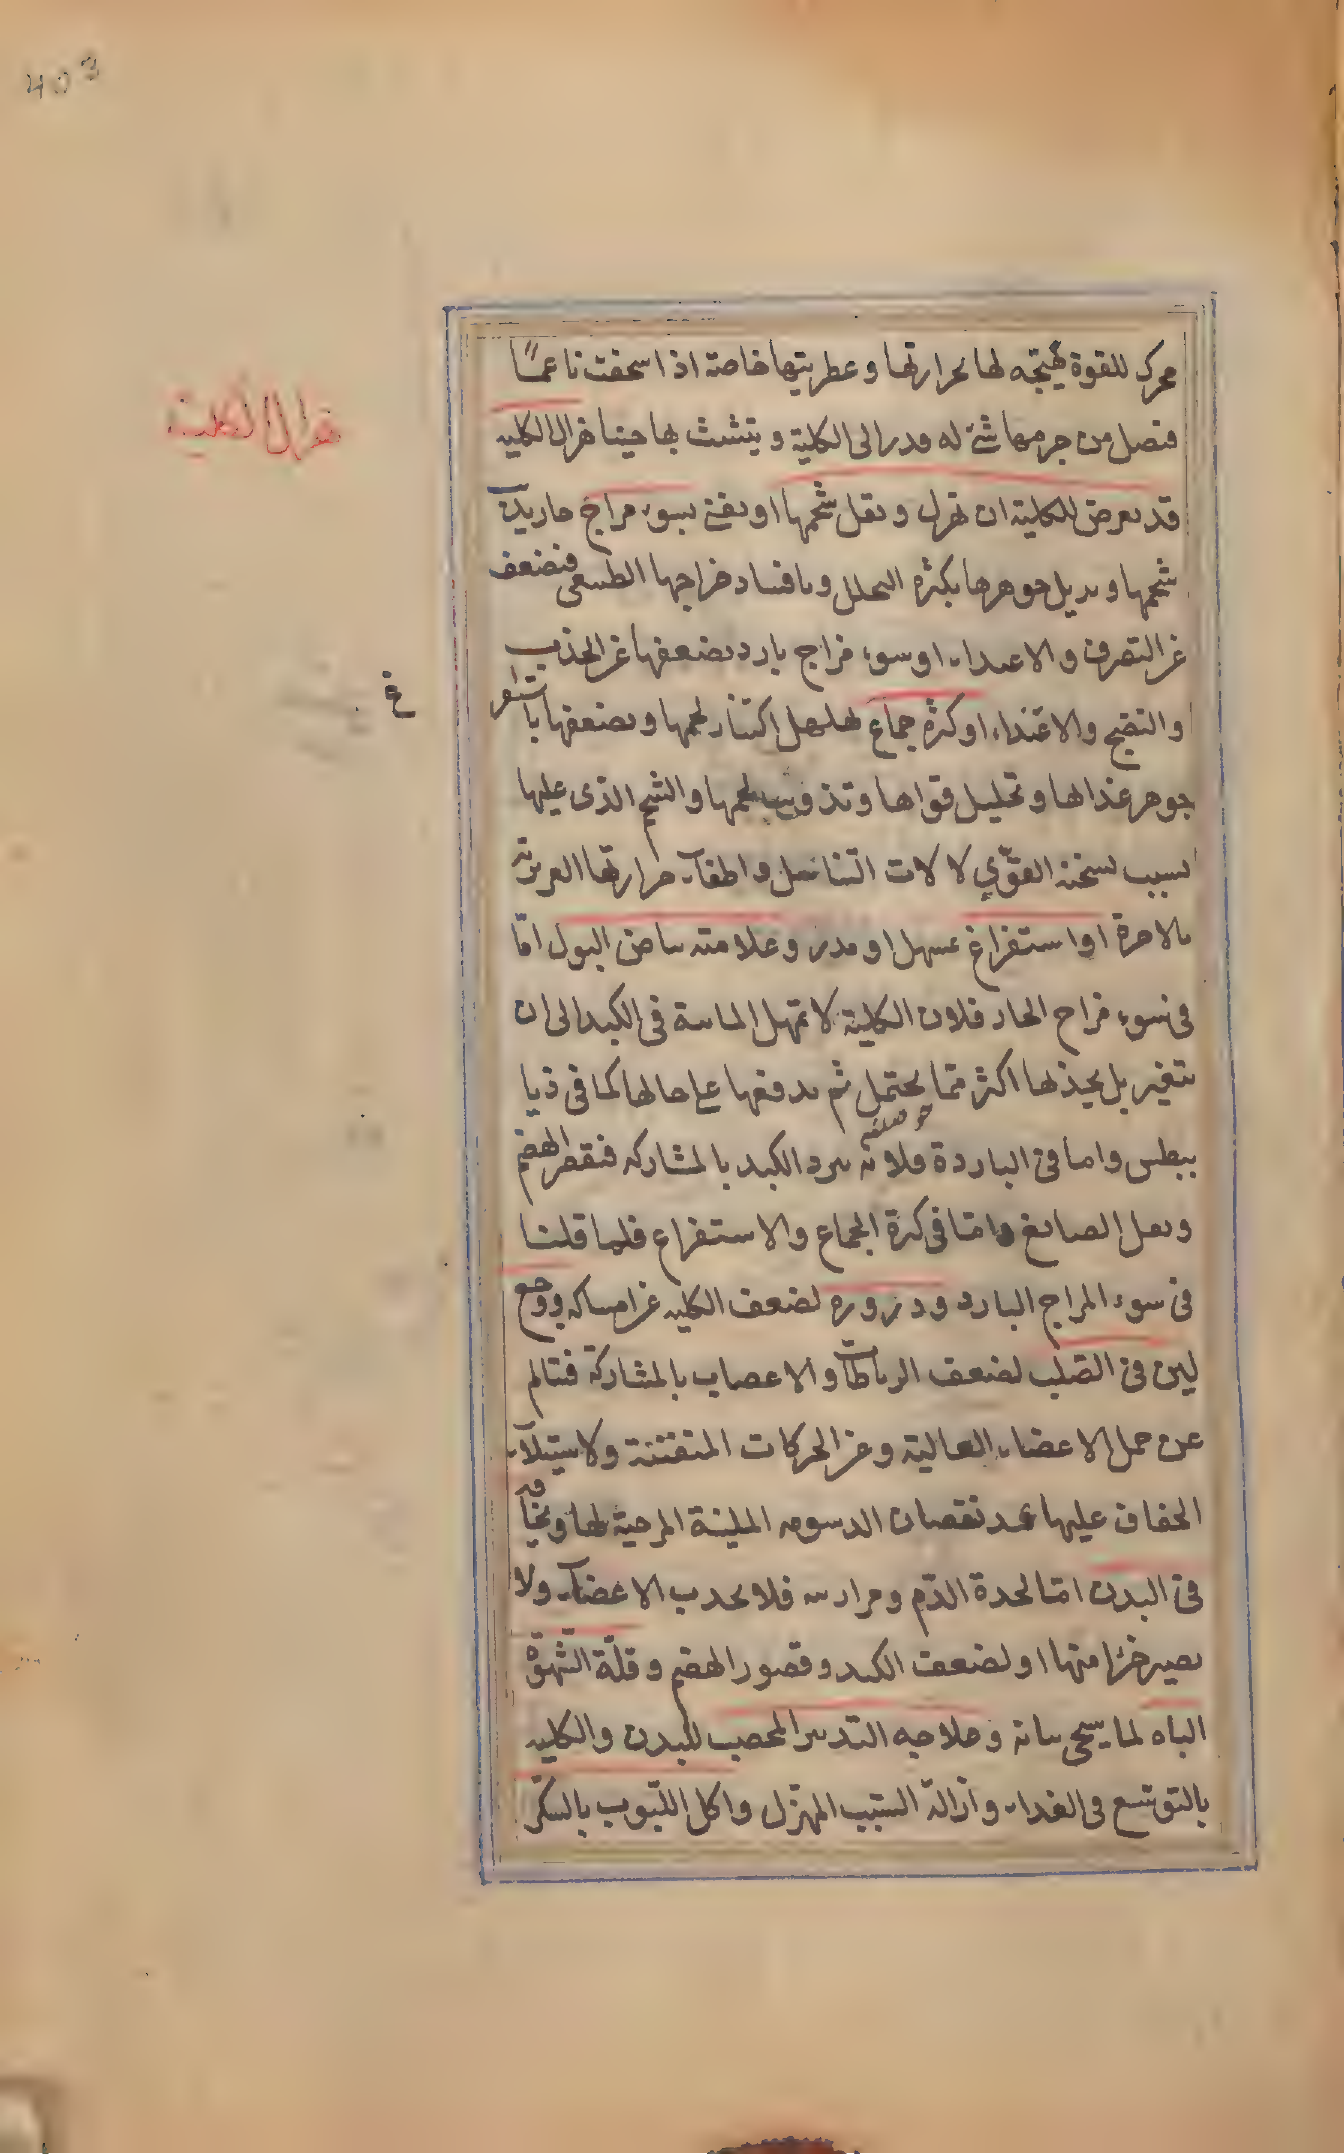 403
محرك للقوة مهيّجه لها بحرارتها وعطريتها خاصة اذا سحقت ناعمًا
فتصل من جرمها شئ له قدر الى الكلية ويتشبث بها حينا هزال الكليه
قد يعرض للكلية ان تهزل ويقل شحمها او يفنى بسوء مزاج حار يذيب
شحمها ويذيل جوهرها بكثرة التحلل وبافساد مزاجها الطبيعى فتضعف
عن التصرف والاغتذاء او سوء مزاج بارد يضعفها عن الجذب
والنضج والاغتذاء او كثرة جماع يهلهل اكتناز لحمها ويضعفها باستفراغ
جوهر غذائها وتحليل قواها وتذويب لحمها والشحم الذى عليها
بسبب تسخينه القوّي لالات التناسل واطفاء حرارتها الغريزية
بالاخرة او استفراغ بمسهل او مدر وعلامته بياض البول امّا
فى سوء مزاج الحار فلان الكلية لا تمهل المائية فى الكبد الى ان
يتغير بل يجذبها اكثر ممّا يحتمل ثم يدفعها على حالها كما فى ذيا
بيطس واما فى الباردة فلانه يبرد الكبد بالمشاركه فيقصر الهضم
ويقل الصابغ وامّا فى كثرة الجماع والاستفراغ فلما قلنا
فى سوء المزاج البارد ودروره لضعف الكليه عن امساكه ووجع
لين فى الصّلب لضعف الرباطات والاعصاب بالمشاركة فتالم
عن حمل الاعضاء العالية وعن الحركات المتفننة ولاستيلاء
الجفاف عليها عند نقصان الدسومه المليّنة المرخية لها ونحافة
فى البدن امّا لحدة الدّم ومرارته فلا يجذب الاعضاء ولا
يصير جزءا منها او لضعف الكبد وقصور الهضم وقلّة الشهوة
الباه لما يجئ بيانه وعلاجه التدبير المخصب للبدن والكليه
بالتوسّع فى الغذاء وازالة السّبب المهزل واكل اللّبوب بالسكّر
هزال الكلية
غ